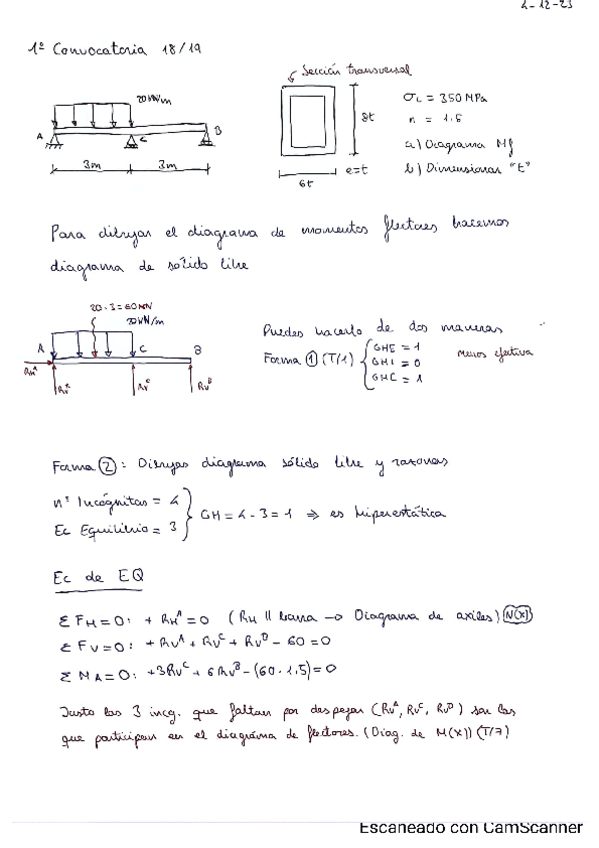 4-12-23
1ª Convocatoria 18/19
Sección transversal
20 kN/m
A
C
B
3m
3m
8t
6t
e=t
σL = 350 MPa
n = 1.5
a) Diagrama Mf
b) Dimensionar "t"
Para dibujar el diagrama de momentos flectores hacemos
diagrama de sólido libre
20·3=60 kN
20 kN/m
A
C
B
RHᴬ
Rvᴬ
Rvᶜ
Rvᴮ
Puedes hacerlo de dos maneras
Forma ① (T/1)
GHE = 1
GHI = 0
GHC = 1
menos efectiva
Forma ②: Dibujas diagrama sólido libre y razonas
nº Incógnitas = 4
Ec Equilibrio = 3
GH = 4 - 3 = 1 ⇒ es hiperestática
Ec de EQ
ΣFH = 0: + RHᴬ = 0 (RH || barra → Diagrama de axiles) N(x)
ΣFV = 0: + Rvᴬ + Rvᶜ + Rvᴮ - 60 = 0
ΣMA = 0: +3Rvᶜ + 6Rvᴮ - (60·1,5) = 0
Justo las 3 incg. que faltan por despejar (Rvᴬ, Rvᶜ, Rvᴮ) son las
que participan en el diagrama de flectores. (Diag. de M(x)) (T/7)
Escaneado con CamScanner